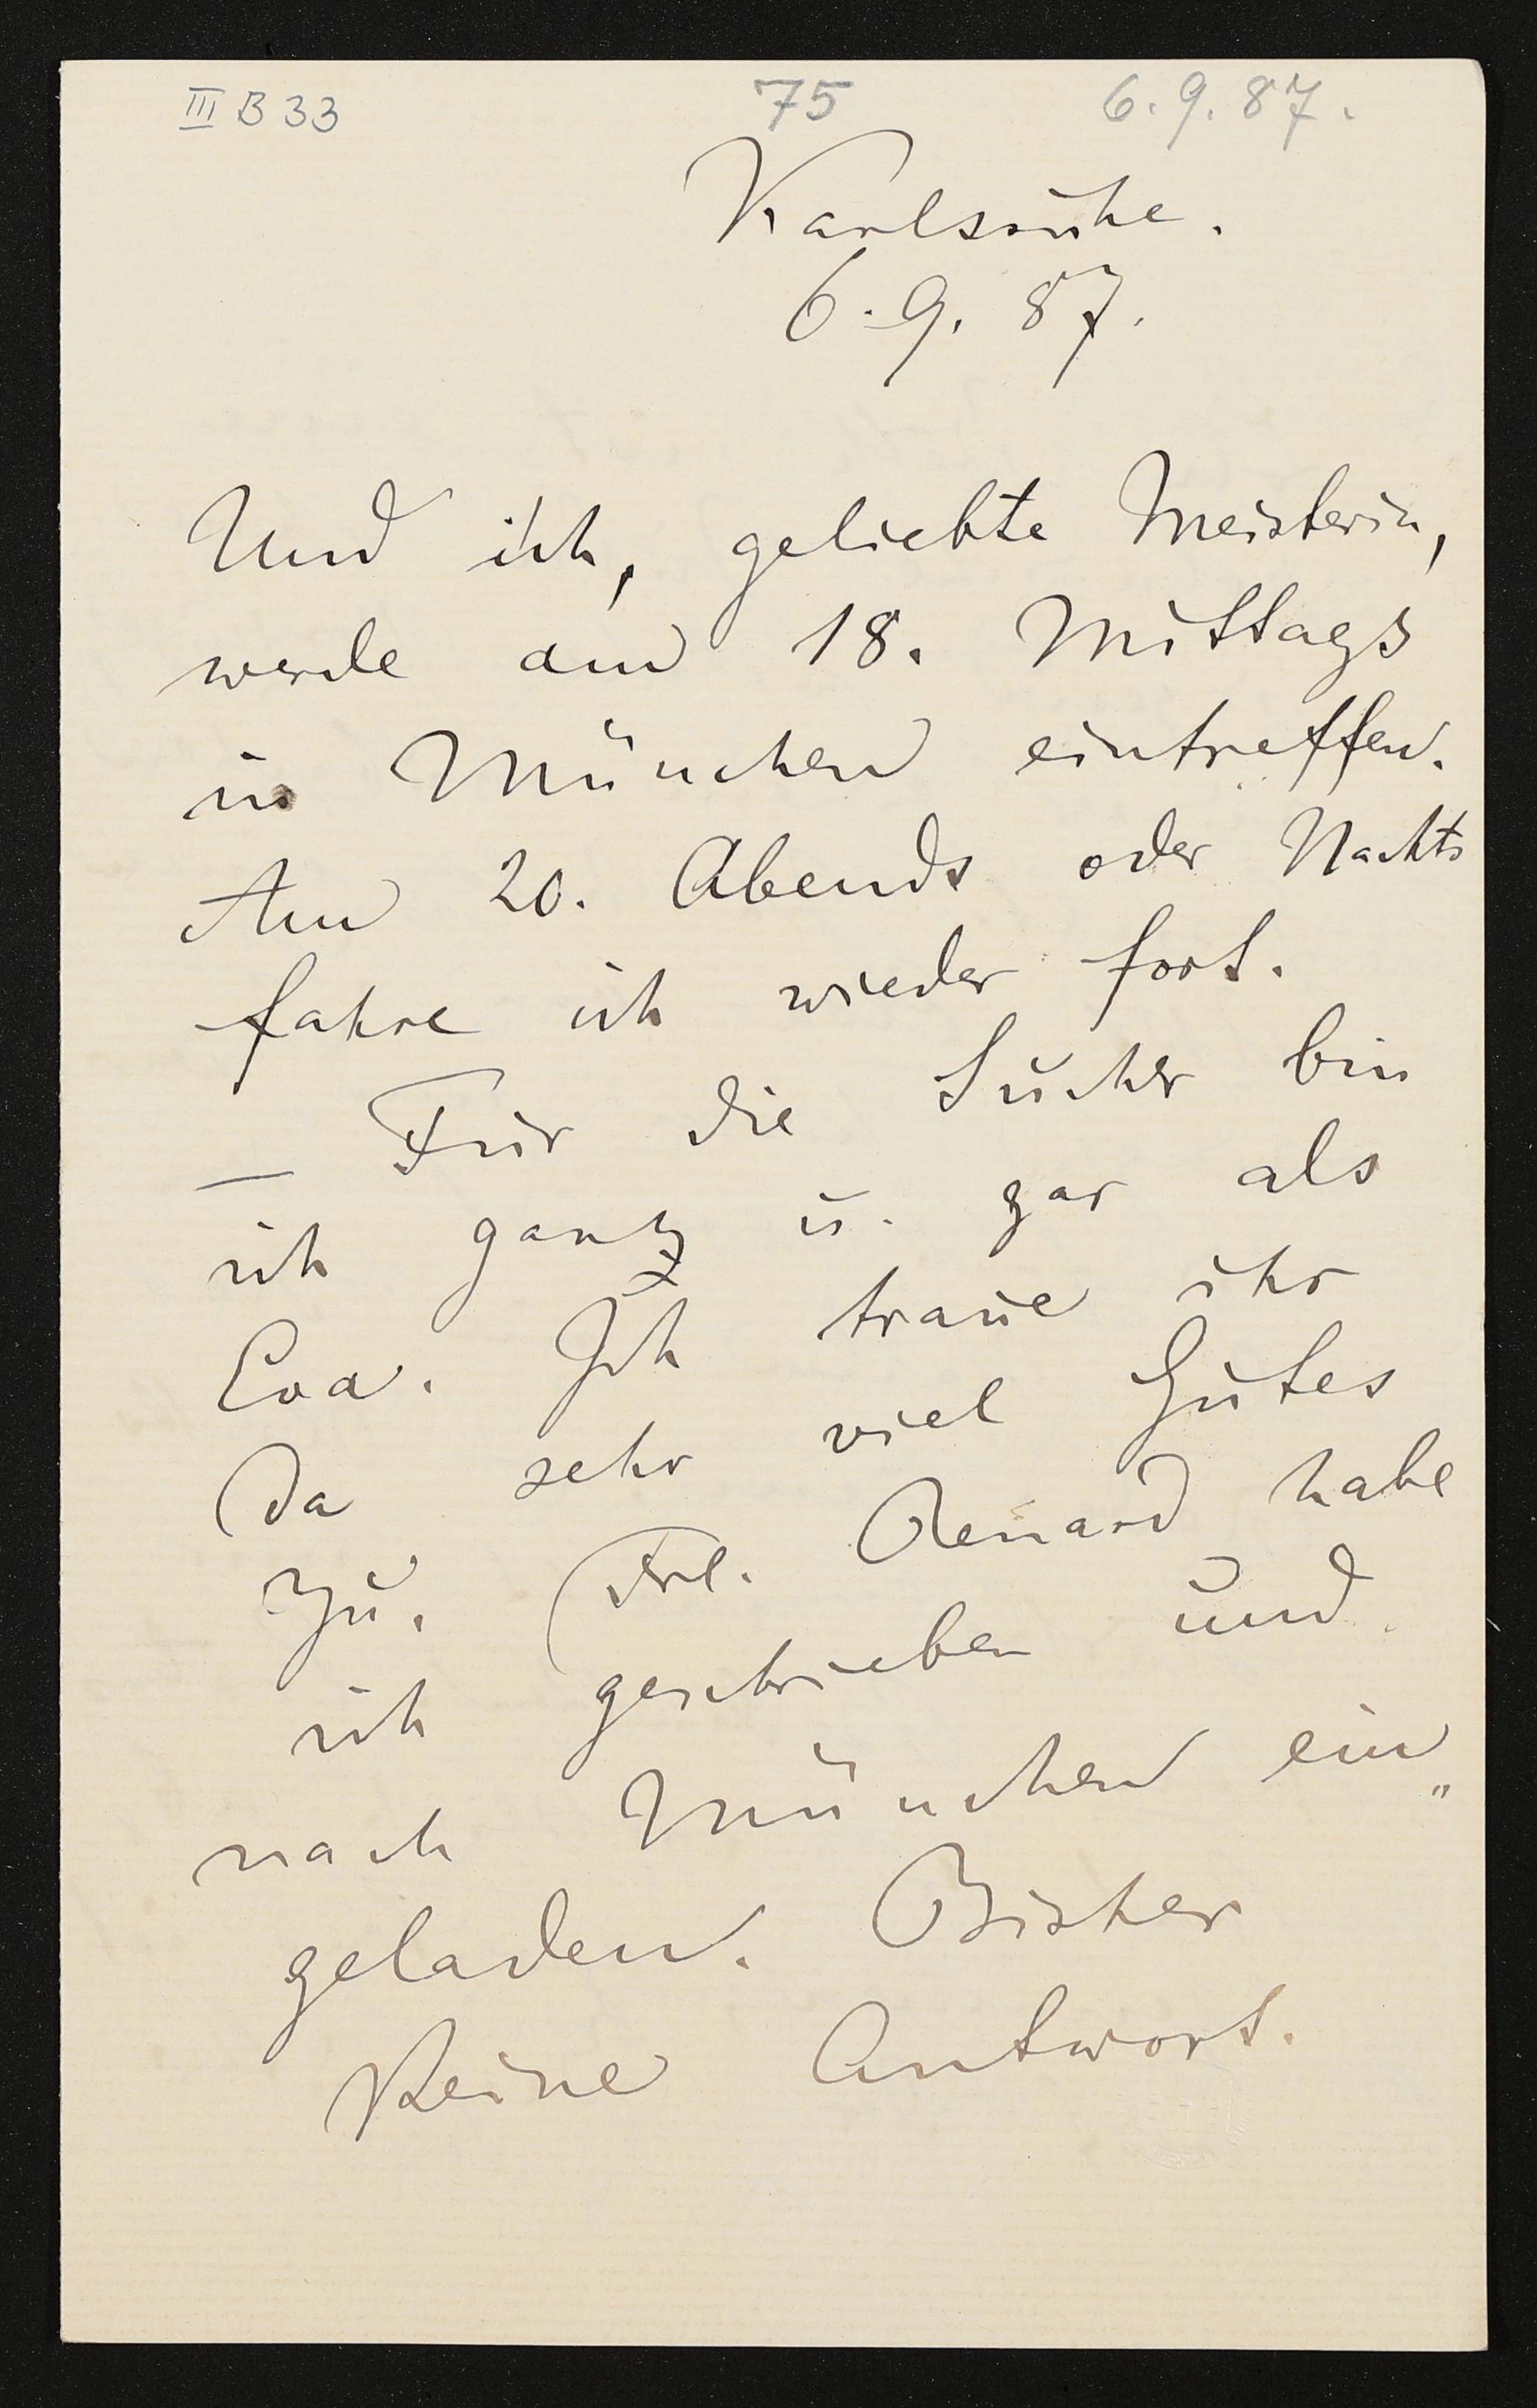 III B 33 75 6.9.87.
Karlsruhe.
6.9.87.
Und ich, geliebte Meisterin,
werde am 18. Mittags
in München eintreffen.
Am 20. Abends oder Nachts
fahre ich wieder fort.
— Für die Sucher bin
ich ganz u. gar als
Eva. Ich traue ihr
da sehr viel Gutes
zu. Frl. Renard habe
ich geschrieben und
nach München ein„
geladen. Bisher
Keine Antwort.